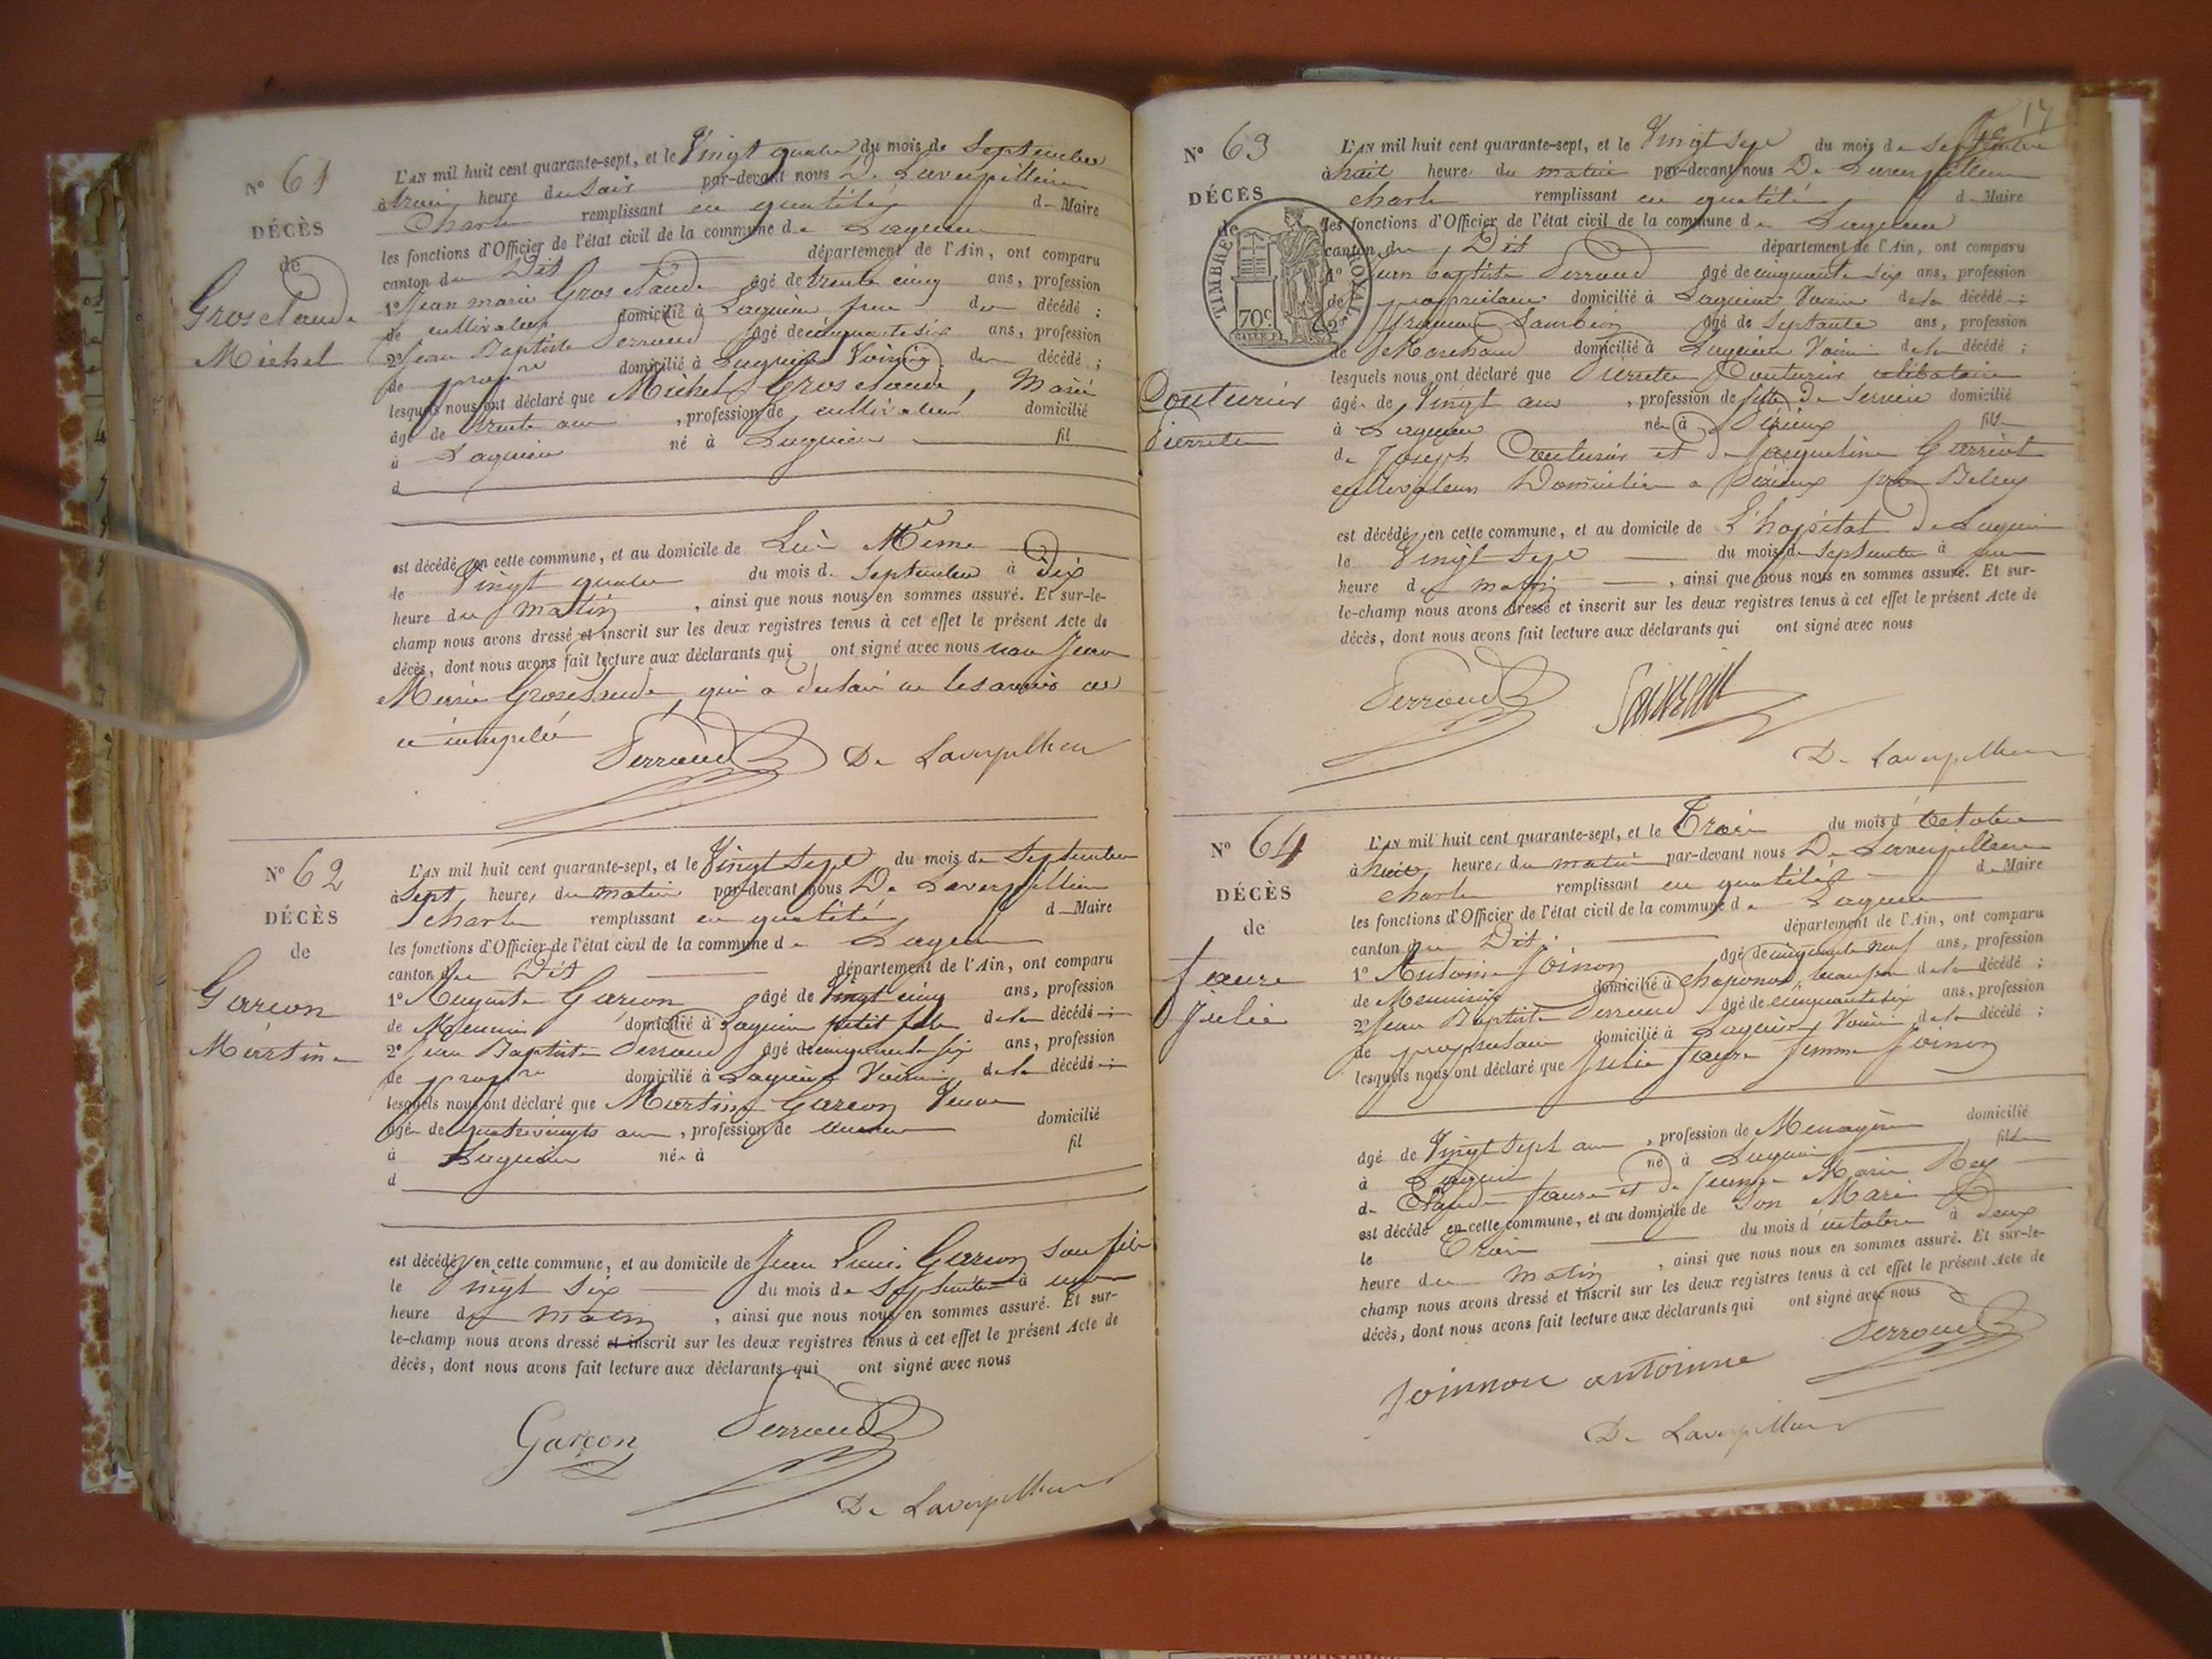 N° 61
DÉCÈS
de
Grosclaude
Michel
L'AN mil huit cent quarante-sept, et le Vingt quatre du mois de Septembre
à trois heure du Soir par-devant nous De Laverpillière
Charles remplissant en qualité d Maire
les fonctions d'Officier de l'état civil de la commune de Lagnieu
canton du Dit département de l'Ain, ont comparu
1° Jean marie Grosclaude âgé de trente cinq ans, profession
de cultivateur domicilié à Lagnieu frere du décédé ;
2° Jean Baptiste Perroud âgé de cinquante six ans, profession
de propre domicilié à Lagnieu Voisin du décédé ;
lesquels nous ont déclaré que Michel Grosclaude, Marié
âgé de trente ans, profession de cultivateur domicilié
à Lagnieu né à Lagnieu fil
d
est décédé en cette commune, et au domicile de Lui Même
le Vingt quatre du mois d. Septembre à Dix
heure du matin, ainsi que nous nous en sommes assuré. Et sur-le-
champ nous avons dressé et inscrit sur les deux registres tenus à cet effet le présent Acte de
décès, dont nous avons fait lecture aux déclarants qui ont signé avec nous non Jean
Marie Grosclaude, qui a déclaré ne le savoir de
ce interpelé
Perroud De Laverpilliere
N° 62
DÉCÈS
de
Garcon
Martine
L'AN mil huit cent quarante-sept, et le Vingt Sept du mois de Septembre
à Sept heure, du matin par-devant nous De Laverpillière
charles remplissant en qualité d Maire
les fonctions d'Officier de l'état civil de la commune de Lagnieu
canton du Dit département de l'Ain, ont comparu
1° Auguste Garcon âgé de Vingt cinq ans, profession
de Menuisier domicilié à Lagnieu petit fils de la décédé ;
2° Jean Baptiste Perroud âgé de cinquante six ans, profession
de propre domicilié à Lagnieu Voisin de la décédé ;
lesquels nous ont déclaré que Martine Garcon Veuve
âgé de quatrevingts ans, profession de aucune domicilié
à Lagnieu née à fil
d
est décédé en cette commune, et au domicile de Jean Louis Garcon Son fils
le Vingt Six du mois de Septembre à onze
heure du matin, ainsi que nous nous en sommes assuré. Et sur-
le-champ nous avons dressé et inscrit sur les deux registres tenus à cet effet le présent Acte de
décès, dont nous avons fait lecture aux déclarants qui ont signé avec nous
Garcon Perroud
De Laverpilliere
17
N° 63
DÉCÈS
de
TIMBRE ROYAL
70c
Couturier
Pierrette
L'AN mil huit cent quarante-sept, et le Vingt Sept du mois de Septembre
à huit heure, du matin par-devant nous De Laverpilliere
charles remplissant en qualité d Maire
les fonctions d'Officier de l'état civil de la commune de Lagnieu
canton du Dit département de l'Ain, ont comparu
1° Jean baptiste Perroud âgé de cinquante Six ans, profession
de propriétaire domicilié à Lagnieu Voisin de la décédé ;
2° âgé de Septante ans, profession
de Marchand domicilié à Lagnieu Voisin de la décédé ;
lesquels nous ont déclaré que Pierrette Couturier célibataire
âgé de Vingt ans, profession de fille De Service domicilié
à Lagnieu née à Peizieux fille
de Joseph Couturier et de Jacqueline Garriot
cultivateurs Domiciliés a Peizieux près Belley
est décédé en cette commune, et au domicile de L'hopital De Lagnieu
le Vingt Sept du mois de Septembre à une
heure du matin, ainsi que nous nous en sommes assuré. Et sur-
le-champ nous avons dressé et inscrit sur les deux registres tenus à cet effet le présent Acte de
décès, dont nous avons fait lecture aux déclarants qui ont signé avec nous
Perroud
De Laverpilliere
N° 64
DÉCÈS
de
faure
Julie
L'AN mil huit cent quarante-sept, et le Trois du mois d'octobre
à huit heure, du matin par-devant nous De Laverpilliere
charles remplissant en qualité d Maire
les fonctions d'Officier de l'état civil de la commune de Lagnieu
canton du Dit département de l'Ain, ont comparu
1° Antoine Joinon âgé de cinquante neuf ans, profession
de Menuisier domicilié à chaponod beau pere de la décédé ;
2° Jean Baptiste Perroud âgé de cinquante six ans, profession
de proprietaire domicilié à Lagnieu Voisin de la décédé ;
lesquels nous ont déclaré que Julie faure femme Joinon
âgé de Vingt Sept ans, profession de Menagère domicilié
à Lagnieu né à Lagnieu fille
de Claude faure et de Jeanne Marie Rey
est décédé en cette commune, et au domicile de Son Mari
le Trois du mois d'octobre à Deux
heure du matin, ainsi que nous nous en sommes assuré. Et sur-le-
champ nous avons dressé et inscrit sur les deux registres tenus à cet effet le présent Acte de
décès, dont nous avons fait lecture aux déclarants qui ont signé avec nous
Perroud
Joinnon antoinne
De Laverpilliere